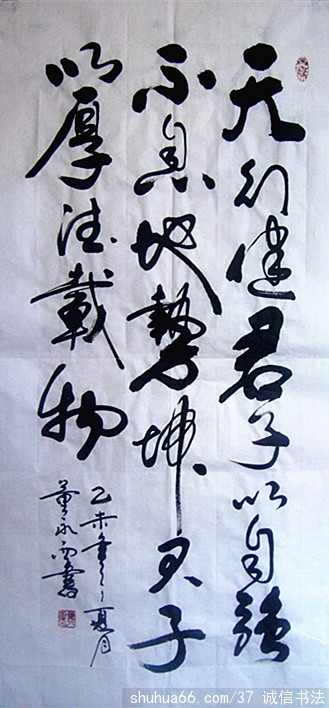 天行健君子以自強
不息地勢坤君子
以厚德載物
乙未年之夏月
董永書
shuhua66.com/37 诚信书法